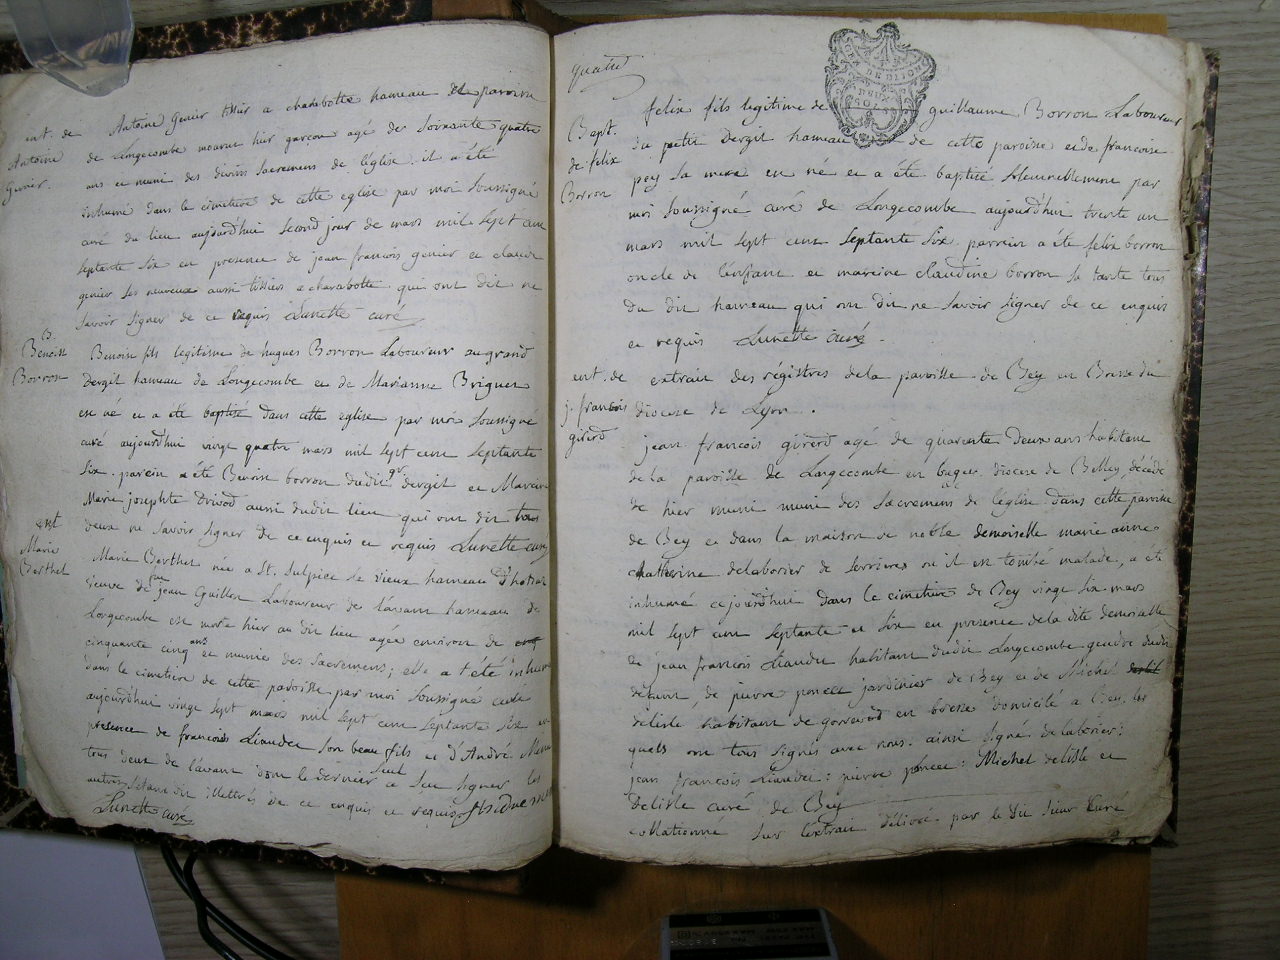 ent. de
Antoine
Genier.
Antoine Genier tissier a charabotte hameau de paroisse
de Longecombe mourut hier garçon agé de soixante quatre
ans et muni des divins sacremens de l'église. il a été
inhumé dans le cimetiere de cette eglise par moi soussigné
curé du lieu aujourd'hui second jour de mars mil sept cent
septante six en presence de jean françois genier et claude
genier ses neveux aussi tissiers a charabotte qui ont dit ne
savoir signer de ce requis Lunette curé
B.
Benoist
Borron
Benoist fils legitime de hugues Borron Laboureur au grand
dergit hameau de Longecombe et de Marianne Briguet
est né et a été baptisé dans cette eglise par moi soussigné
curé aujourd'hui vingt quatre mars mil sept cent septante
six. parein a été Benoist borron dudit gr. dergit et Mareine
Marie josephte aussi dudit lieu qui ont dit tous
deux ne savoir signer de ce enquis et requis Lunette curé
ent
Marie
Berthet
Marie Berthet née a St. Sulpice le vieux hameau d'
veuve de feu jean Guillot Laboureur de l'avant hameau de
Longecombe est morte hier au dit lieu agée environ de
cinquante cinq ans et munie des sacremens; elle a été inhumé
dans le cimetiere de cette paroisse par moi soussigné curé
aujourd'hui vingt sept mars mil sept cent septante six en
presence de francois Liaudet son beau fils et d'André
tous deux de l'avant dont le dernier a seul seu signer les
autres s'étant dit illettrés de ce enquis et requis
Lunette curé
quatre
GEN DE DIJON
DEUX
SOLS
Bapt.
de felix
Borron
felix fils legitime de guillaume Borron Laboureur
du petit Dergit hameau de cette paroisse et de francoise
pey sa mere est né et a été baptisé solemnellement par
moi soussigné curé de Longecombe aujourd'hui trente un
mars mil sept cent septante six, parrein a été felix borron
oncle de l'enfant et mareine claudine borron sa tante tous
du dit hameau qui ont dit ne savoir signer de ce enquis
et requis Lunette curé.
ent. de
j. francois
girerd
extrait des régistres de la paroisse de Bey en Bresse du
diocese de Lyon.
jean françois girerd agé de quarente deux ans habitant
de la paroisse de Longecombe en bugey diocese de Belley, décédé
de hier muni muni des sacremens de l'église dans cette paroisse
de Bey et dans la maison de noble demoiselle marie anne
catherine delaborier de serrieres où il est tombé malade, a été
inhumé cejourd'hui dans le cimetiere de Bey vingt six mars
mil sept cent septante et six en presence de la dite demoiselle
de jean francois Liaudet habitant dudit Longecombe gendre dudit
défunt, de pierre poncet jardinier de Bey et de Michel
delisle habitant de gorrevod en bresse domicilé a Bey, les
quels ont tous signés avec nous. ainsi signé delaborier:
jean francois Liaudet: pierre poncet: Michel delisle et
delisle curé de Bey
collationné sur l'extrait délivré par le dit sieur Curé